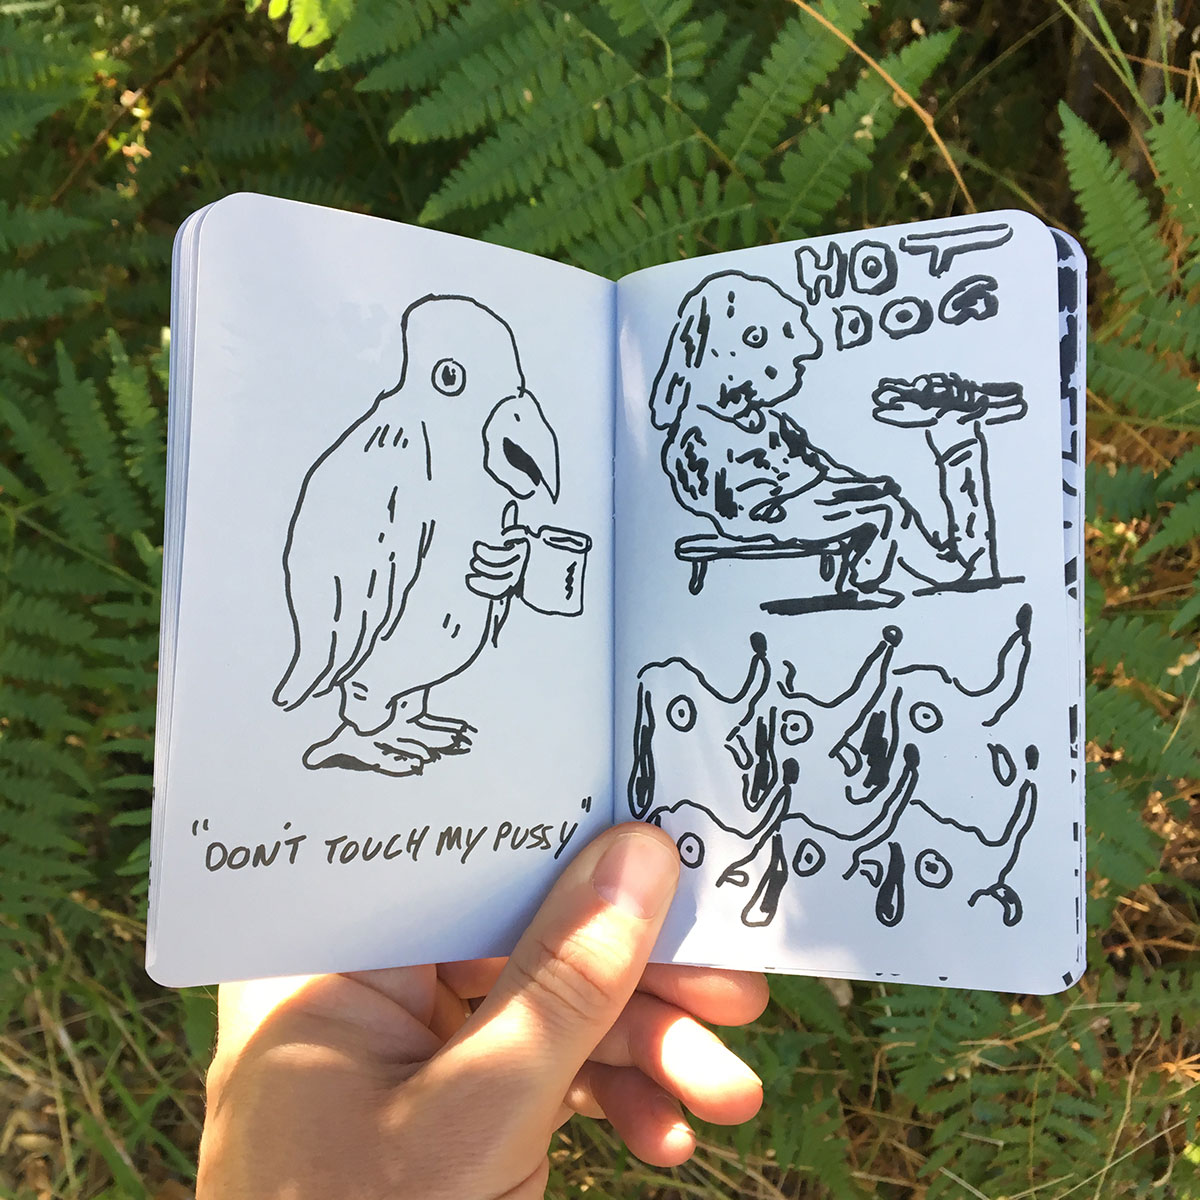 "DON'T TOUCH MY PUSSY"
HOT
DOG